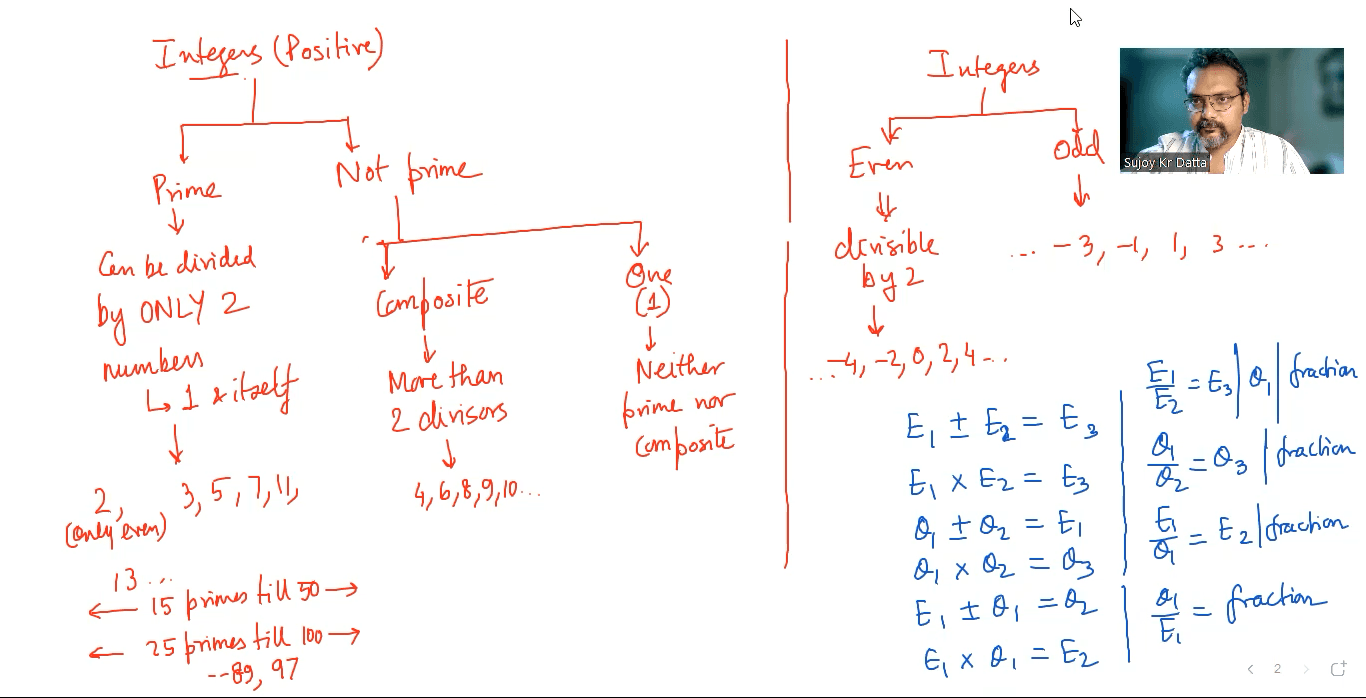 Integers (Positive)
Prime
Not prime
Can be divided
by ONLY 2
numbers
↳ 1 & itself
2,
(only even)
3, 5, 7, 11,
13 ...
← 15 primes till 50 →
← 25 primes till 100 →
--89, 97
Composite
More than
2 divisors
4, 6, 8, 9, 10...
One
(1)
Neither
prime nor
composite
Integers
Even
Odd
divisible
by 2
... -4, -2, 0, 2, 4 ...
... -3, -1, 1, 3 ...
E₁ ± E₂ = E₃
E₁ × E₂ = E₃
O₁ ± O₂ = E₁
O₁ × O₂ = O₃
E₁ ± O₁ = O₂
E₁ × O₁ = E₂
E₁/E₂ = E₃ | O₁ | fraction
O₁/O₂ = O₃ | fraction
E₁/O₁ = E₂ | fraction
O₁/E₁ = fraction
Sujoy Kr Datta
2